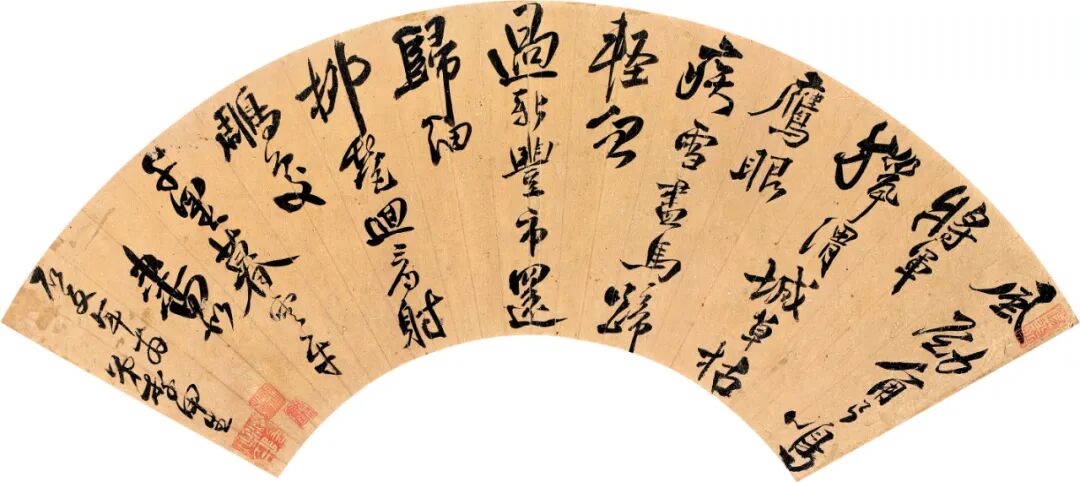 風勁角弓鳴
將軍
獵渭城草枯
鷹眼
疾雪盡馬蹄
輕忽
過新豐市還
歸細
柳營回看射
鵰處
千里暮雲平